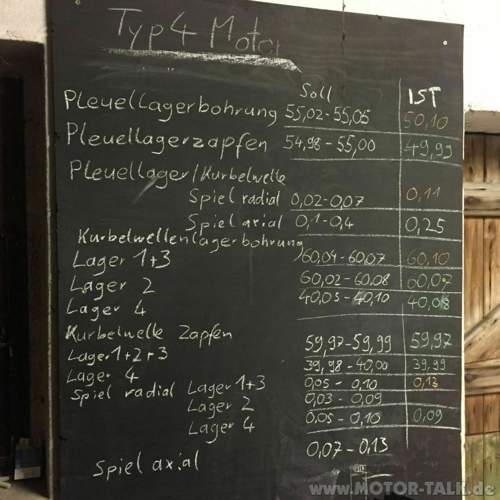 Typ 4 Motor
Soll IST
Pleuellagerbohrung 55,02-55,05 50,10
Pleuellagerzapfen 54,98-55,00 49,99
Pleuellager/Kurbelwelle
Spiel radial 0,02-0,07 0,11
Spiel axial 0,1-0,4 0,25
Kurbelwellenlagerbohrung
Lager 1+3 60,04-60,07 60,10
Lager 2 60,02-60,08 60,07
Lager 4 40,05-40,10 40,08
Kurbelwelle Zapfen
Lager 1+2+3 59,97-59,99 59,97
Lager 4 39,98-40,00 39,99
Spiel radial Lager 1+3 0,05-0,10 0,13
Lager 2 0,03-0,09
Lager 4 0,05-0,10 0,09
Spiel axial 0,07-0,13
www.MOTOR-TALK.de